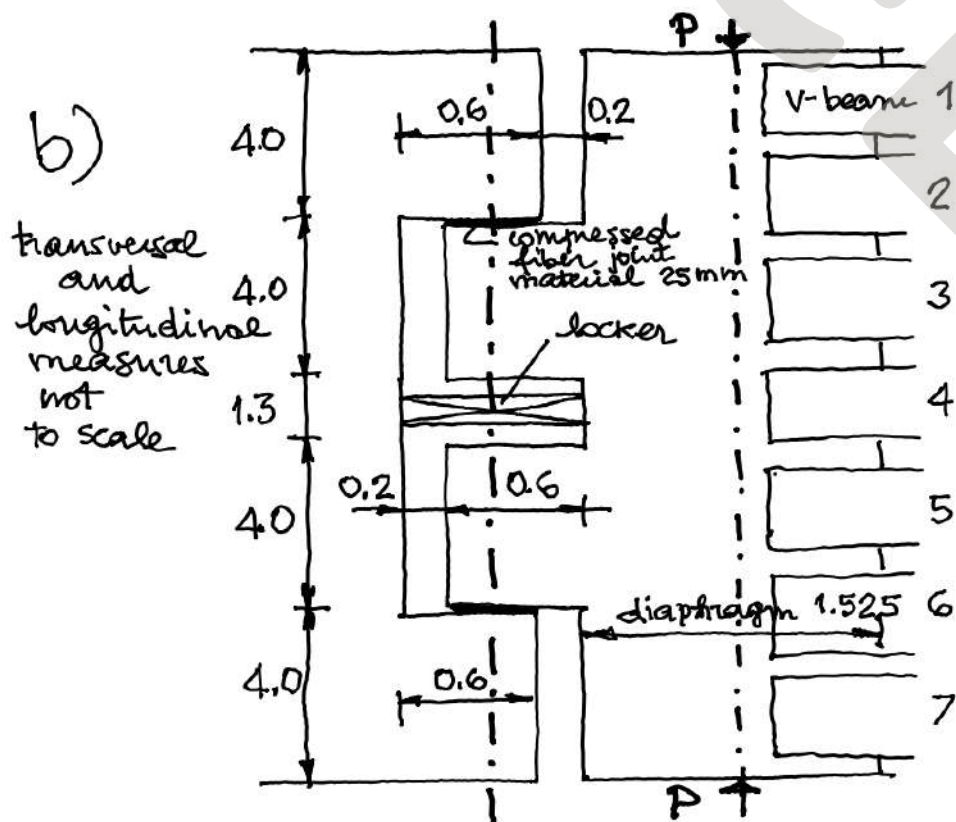 b)
transversal
and
longitudinal
measures
not
to scale
4.0
4.0
1.3
4.0
4.0
0.6
0.2
compressed
fiber joint
material 25mm
locker
0.2
0.6
0.6
P
P
diaphragm 1.525
V-beam 1
2
3
4
5
6
7